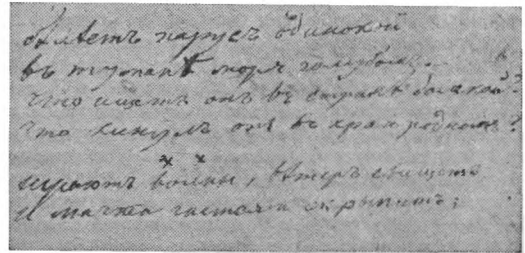 бѣлѣетъ парусъ одинокой
въ туманѣ моря голубомъ. —
что ищетъ онъ въ странѣ далекой?
что кинулъ онъ въ краю родномъ?
играютъ волны, вѣтеръ свищетъ
и мачта гнется и скрыпитъ;